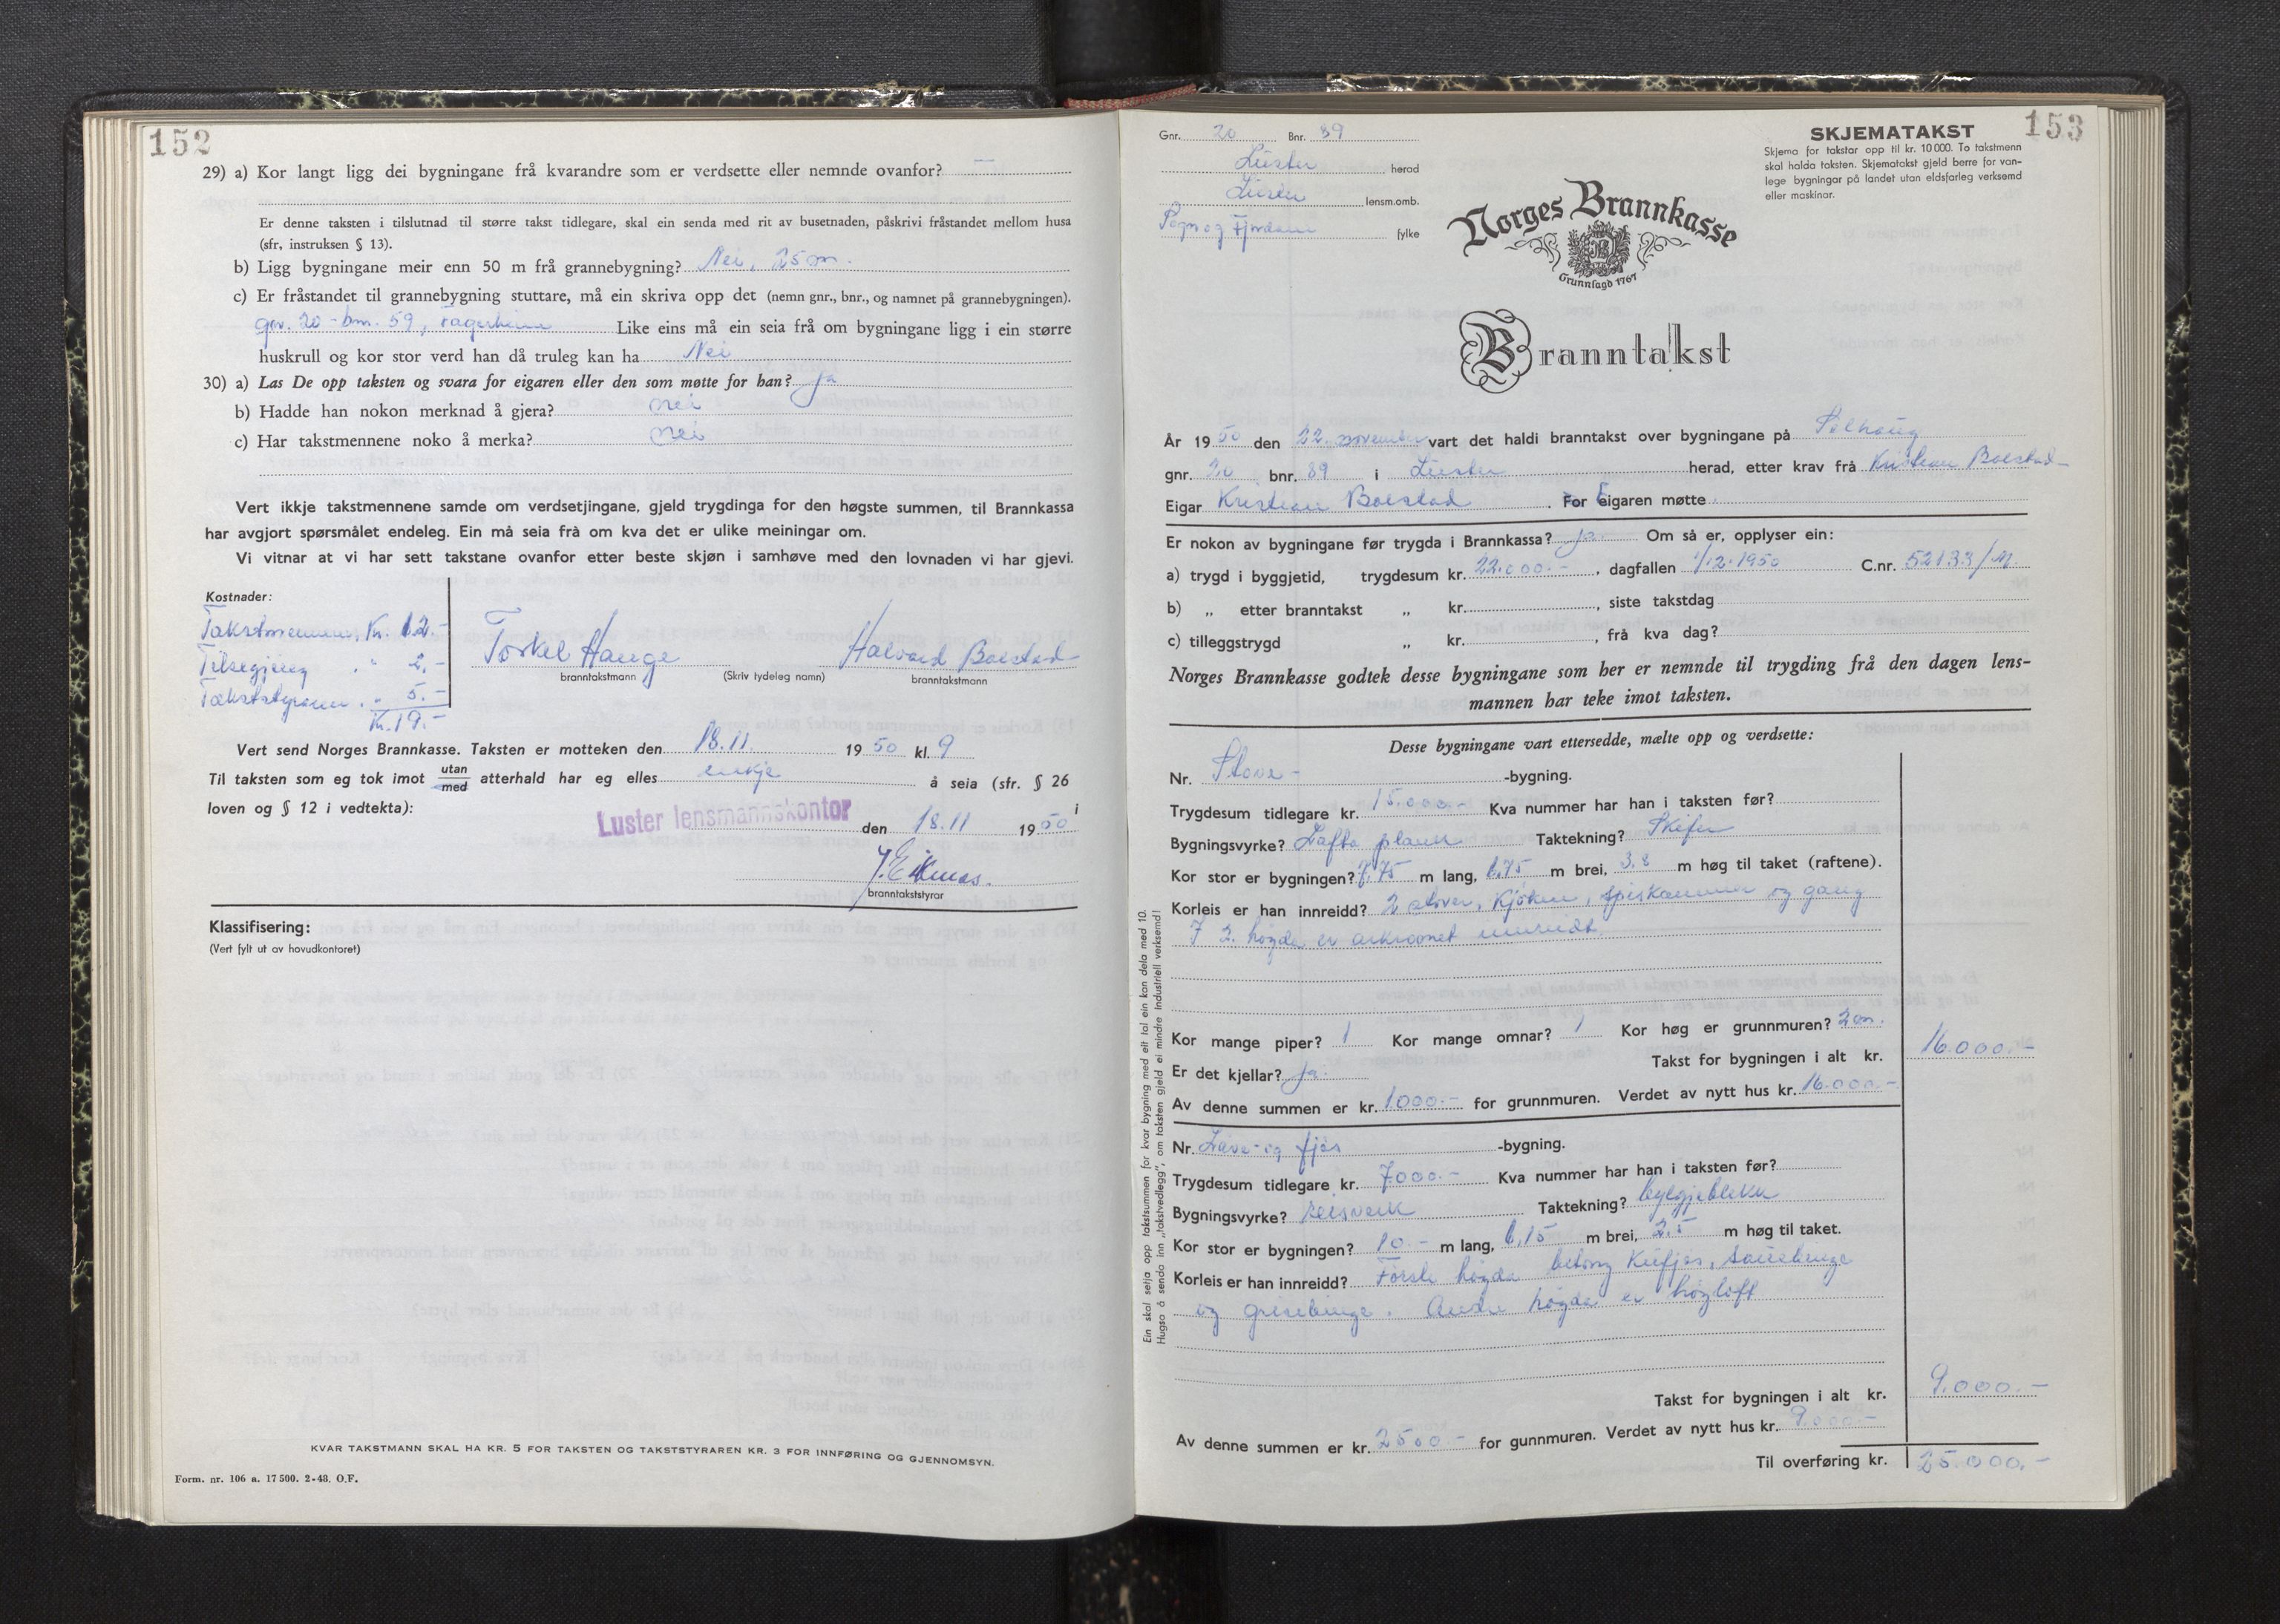 152
29) a) Kor langt ligg dei bygningane frå kvarandre som er verdsette eller nemnde ovanfor? —
Er denne taksten i tilslutnad til større takst tidlegare, skal ein senda med rit av busetnaden, påskrivi fråstandet mellom husa
(sfr, instruksen § 13).
b) Ligg bygningane meir enn 50 m frå grannebygning? Nei, 25 m.
c) Er fråstandet til grannebygning stuttare, må ein skriva opp det (nemn gnr., bnr., og namnet på grannebygningen).
gnr. 20 - bnr. 59, Fagerheim Like eins må ein seia frå om bygningane ligg i ein større
huskrull og kor stor verd han då truleg kan ha Nei
30) a) Las De opp taksten og svara for eigaren eller den som møtte for han? ja
b) Hadde han nokon merknad å gjera? nei
c) Har takstmennene noko å merka? nei
Vert ikkje takstmennene samde om verdsetjingane, gjeld trygdinga for den høgste summen, til Brannkassa
har avgjort spørsmålet endeleg. Ein må seia frå om kva det er ulike meiningar om.
Vi vitnar at vi har sett takstane ovanfor etter beste skjøn i samhøve med den lovnaden vi har gjevi.
Kostnader:
Takstmenn, Kr. 12.-
Tilsegjing " 2.-
Takststyraren " 5.-
Kr. 19.-
Torkel Hauge Halvard Bolstad
branntakstmann (Skriv tydeleg namn) branntakstmann
Vert send Norges Brannkasse. Taksten er motteken den 18.11. 1950 kl. 9
Til taksten som eg tok imot utan/med atterhald har eg elles inkje å seia (sfr. § 26
loven og § 12 i vedtekta):
Luster lensmannskontor den 18.11 1950 i
J. Eikenes.
branntakststyrar
Klassifisering:
(Vert fylt ut av hovudkontoret)
KVAR TAKSTMANN SKAL HA KR. 5 FOR TAKSTEN OG TAKSTSTYRAREN KR. 3 FOR INNFØRING OG GJENNOMSYN.
Form. nr. 106 a. 17 500. 2-48. O.F.
153
Gnr. 20 Bnr. 89
Luster herad
Luster lensm.omb.
Sogn og Fjordane fylke
SKJEMATAKST
Skjema for takstar opp til kr. 10 000. To takstmenn
skal halda taksten. Skjematakst gjeld berre for van-
lege bygningar på landet utan eldsfarleg verksemd
eller maskinar.
Norges Brannkasse
Grunnlagd 1767
Branntakst
År 1950 den 22. november vart det haldi branntakst over bygningane på Solhaug
gnr. 20 bnr. 89 i Luster herad, etter krav frå Kristian Bolstad
Eigar Kristian Bolstad. For Eigaren møtte
Er nokon av bygningane før trygda i Brannkassa? ja Om så er, opplyser ein:
a) trygd i byggjetid, trygdesum kr. 22.000.-, dagfallen 1/12.1950 C.nr. 52133/M
b) „ etter branntakst „ kr., siste takstdag
c) tilleggstrygd „ kr., frå kva dag?
Norges Brannkasse godtek desse bygningane som her er nemnde til trygding frå den dagen lens-
mannen har teke imot taksten.
Desse bygningane vart ettersedde, mælte opp og verdsette:
Nr. Stove- -bygning.
Trygdesum tidlegare kr. 15.000.- Kva nummer har han i taksten før?
Bygningsvyrke? Lafta plank Taktekning? Skifer
Kor stor er bygningen? 7.75 m lang, 6.75 m brei, 3.8 m høg til taket (raftene).
Korleis er han innreidd? 2 stover, kjøken, spiskammer og gang
I 2. høgda er arkrommet innreidt
Kor mange piper? 1 Kor mange omnar? 1 Kor høg er grunnmuren? 2 m.
Er det kjellar? ja. Takst for bygningen i alt kr. 16.000.-
Av denne summen er kr. 1000.- for grunnmuren. Verdet av nytt hus kr. 16.000.-
Nr. Løve- og fjøs -bygning.
Trygdesum tidlegare kr. 7000.- Kva nummer har han i taksten før?
Bygningsvyrke? Reisverk Taktekning? bylgjeblekk
Kor stor er bygningen? 10.- m lang, 6,15 m brei, 2.5 m høg til taket.
Korleis er han innreidd? Første høgda betong kufjøs, sauebinge
og grisebinge. Andre høgda er høyloft
Takst for bygningen i alt kr. 9.000.-
Av denne summen er kr. 2500.- for gunnmuren. Verdet av nytt hus kr. 9.000.-
Til overføring kr. 25.000.-
Ein skal seia opp takstsummen for kvar bygning med eit tal ein kan dela med 10.
Hugso å senda inn „takstvedlegg", om taksten gjeld ei mindre industriell verksemd!